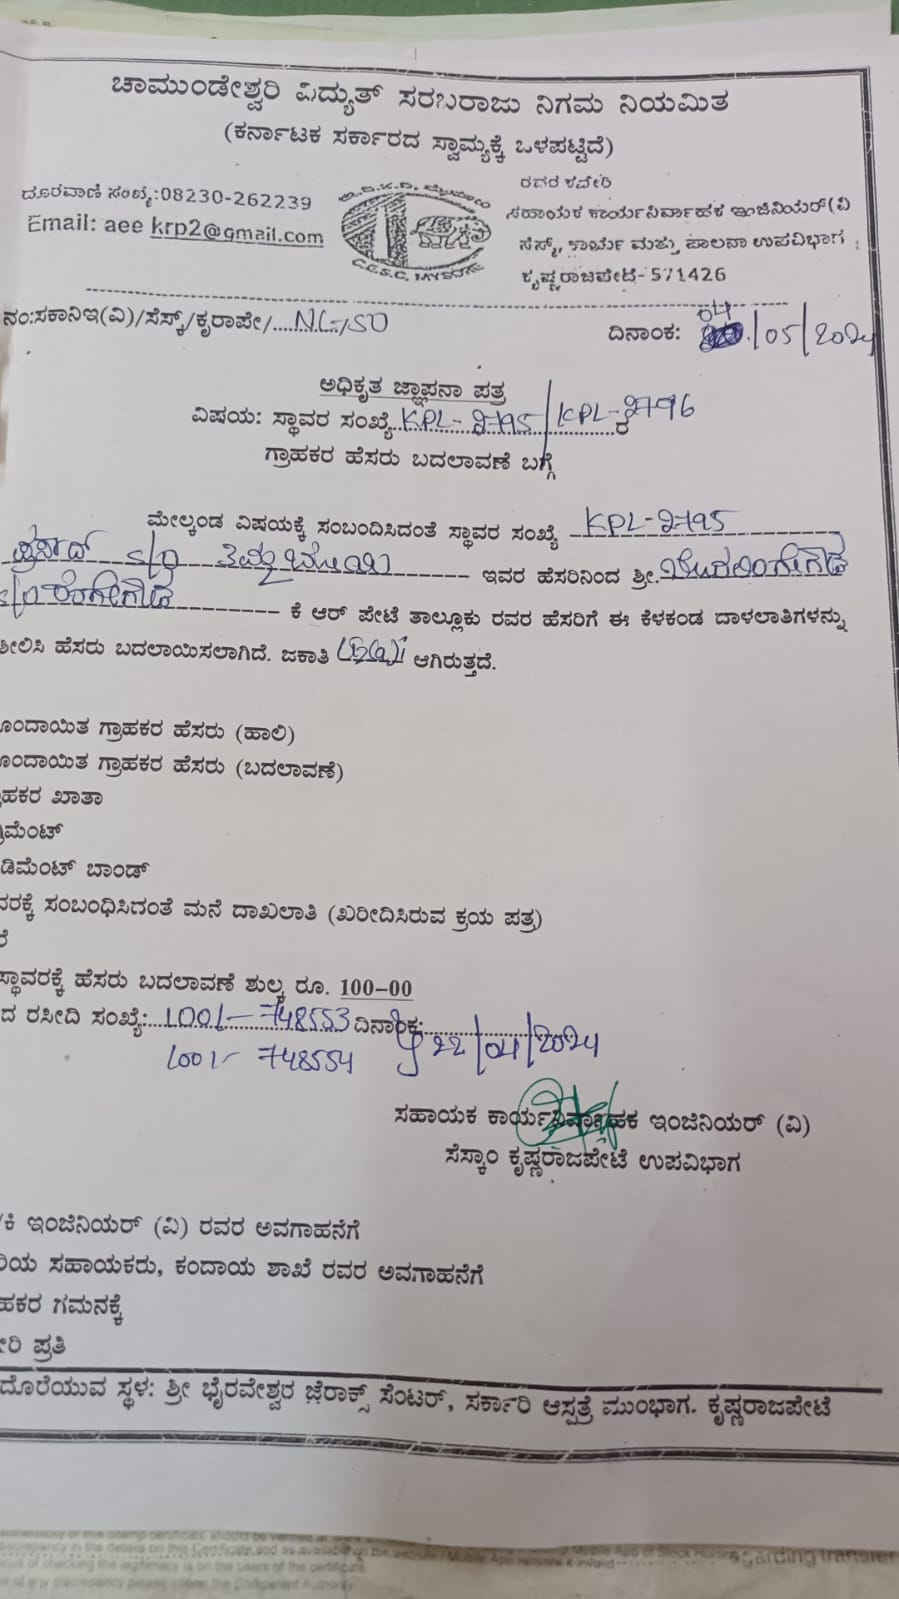 ಚಾಮುಂಡೇಶ್ವರಿ ವಿದ್ಯುತ್ ಸರಬರಾಜು ನಿಗಮ ನಿಯಮಿತ
(ಕರ್ನಾಟಕ ಸರ್ಕಾರದ ಸ್ವಾಮ್ಯಕ್ಕೆ ಒಳಪಟ್ಟಿದೆ)
ರವರ ಕಚೇರಿ
ದೂರವಾಣಿ ಸಂಖ್ಯೆ:08230-262239
ಸಹಾಯಕ ಕಾರ್ಯನಿರ್ವಾಹಕ ಇಂಜಿನಿಯರ್(ವಿ
Email: aee krp2@gmail.com
ಸೆಸ್ಕ್, ಕಾರ್ಯ ಮತ್ತು ಪಾಲನಾ ಉಪವಿಭಾಗ
C.E.S.C. MYSORE
ಕೃಷ್ಣರಾಜಪೇಟೆ-571426
ನಂ:ಸಕಾನಿಇ(ವಿ)/ಸೆಸ್ಕ್/ಕೃರಾಪೇ/
ದಿನಾಂಕ: 04/05/2024
ಅಧಿಕೃತ ಜ್ಞಾಪನಾ ಪತ್ರ
ವಿಷಯ: ಸ್ಥಾವರ ಸಂಖ್ಯೆ KPL-2795/KPL-2796 ರ
ಗ್ರಾಹಕರ ಹೆಸರು ಬದಲಾವಣೆ ಬಗ್ಗೆ
ಮೇಲ್ಕಂಡ ವಿಷಯಕ್ಕೆ ಸಂಬಂದಿಸಿದಂತೆ ಸ್ಥಾವರ ಸಂಖ್ಯೆ KPL-2795
ಪ್ರಸಾದ್ s/o ಇವರ ಹೆಸರಿನಿಂದ ಶ್ರೀ.
s/o ಕೆ ಆರ್ ಪೇಟೆ ತಾಲ್ಲೂಕು ರವರ ಹೆಸರಿಗೆ ಈ ಕೆಳಕಂಡ ದಾಳಲಾತಿಗಳನ್ನು
ಶೀಲಿಸಿ ಹೆಸರು ಬದಲಾಯಿಸಲಾಗಿದೆ. ಜಕಾತಿ ಆಗಿರುತ್ತದೆ.
ೊಂದಾಯಿತ ಗ್ರಾಹಕರ ಹೆಸರು (ಹಾಲಿ)
ೊಂದಾಯಿತ ಗ್ರಾಹಕರ ಹೆಸರು (ಬದಲಾವಣೆ)
ಹಕರ ಖಾತಾ
ರಿಮೆಂಟ್
ಡಿಮೆಂಟ್ ಬಾಂಡ್
ವರಕ್ಕೆ ಸಂಬಂಧಿಸಿದಂತೆ ಮನೆ ದಾಖಲಾತಿ (ಖರೀದಿಸಿರುವ ಕ್ರಯ ಪತ್ರ)
ಸ್ಥಾವರಕ್ಕೆ ಹೆಸರು ಬದಲಾವಣೆ ಶುಲ್ಕ ರೂ. 100-00
ದ ರಸೀದಿ ಸಂಖ್ಯೆ: 100/- 748553 ದಿನಾಂಕ: 22/04/2024
100/- 748554
ಸಹಾಯಕ ಕಾರ್ಯನಿರ್ವಾಹಕ ಇಂಜಿನಿಯರ್ (ವಿ)
ಸೆಸ್ಕಾಂ ಕೃಷ್ಣರಾಜಪೇಟೆ ಉಪವಿಭಾಗ
/ಕಿ ಇಂಜಿನಿಯರ್ (ವಿ) ರವರ ಅವಗಾಹನೆಗೆ
ರಿಯ ಸಹಾಯಕರು, ಕಂದಾಯ ಶಾಖೆ ರವರ ಅವಗಾಹನೆಗೆ
ಹಕರ ಗಮನಕ್ಕೆ
ೇರಿ ಪ್ರತಿ
ದೊರೆಯುವ ಸ್ಥಳ: ಶ್ರೀ ಭೈರವೇಶ್ವರ ಜೆರಾಕ್ಸ್ ಸೆಂಟರ್, ಸರ್ಕಾರಿ ಆಸ್ಪತ್ರೆ ಮುಂಭಾಗ. ಕೃಷ್ಣರಾಜಪೇಟೆ